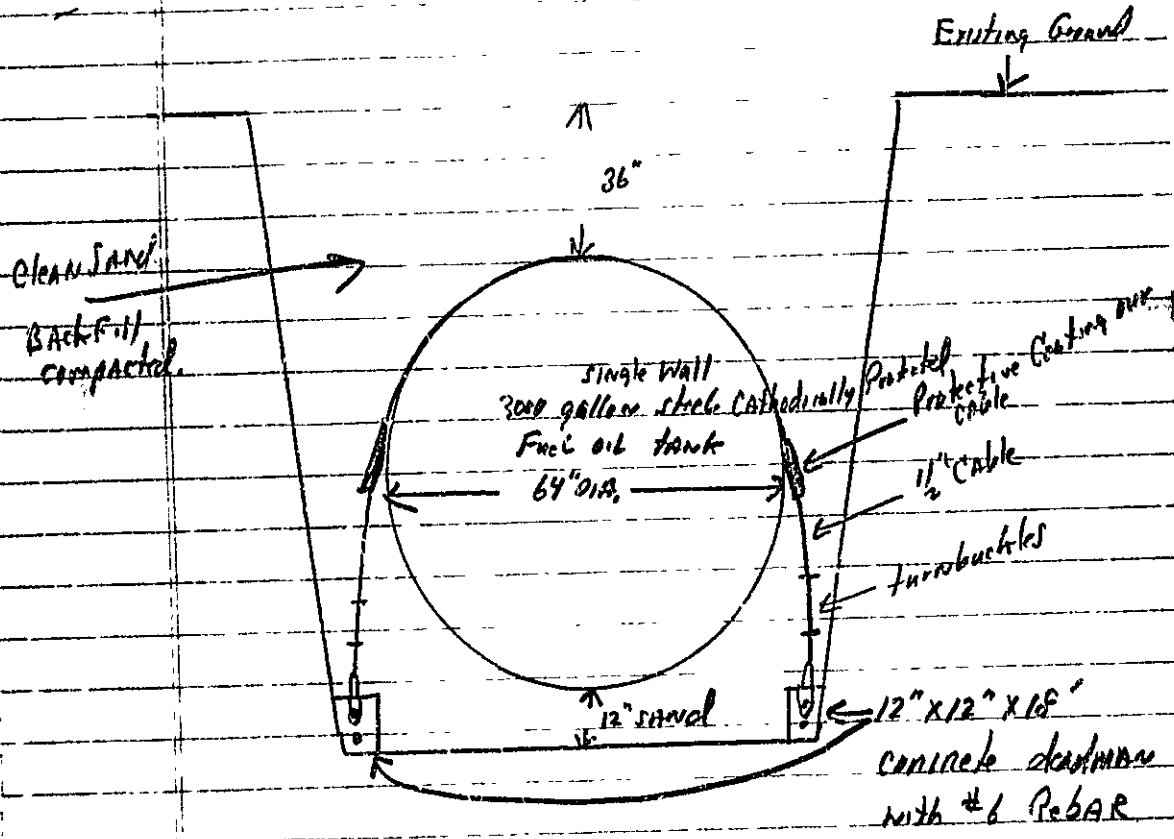 Existing Ground
36"
Clean Sand
Backfill
compacted.
Single Wall
3000 gallon steel Cathodically Protected
Fuel oil tank
64" DIA.
Protective Coating over
Cable
1/2" Cable
turnbuckles
12" SAND
12" X 12" X 18'
concrete deadman
with #6 RebAR